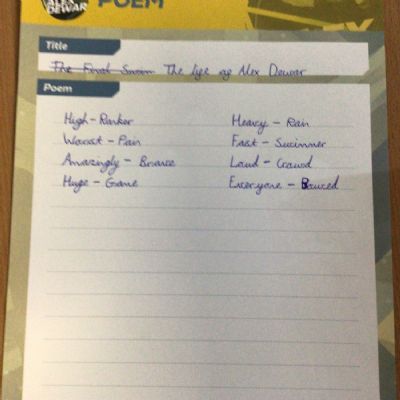 ALEX
DEWAR
POEM
Title
The Final Swim The life of Alex Dewar
Poem
High - Ranker
Worst - Pain
Amazingly - Brave
Huge - Game
Heavy - Rain
Fast - Swimmer
Loud - Crowd
Everyone - Bowed